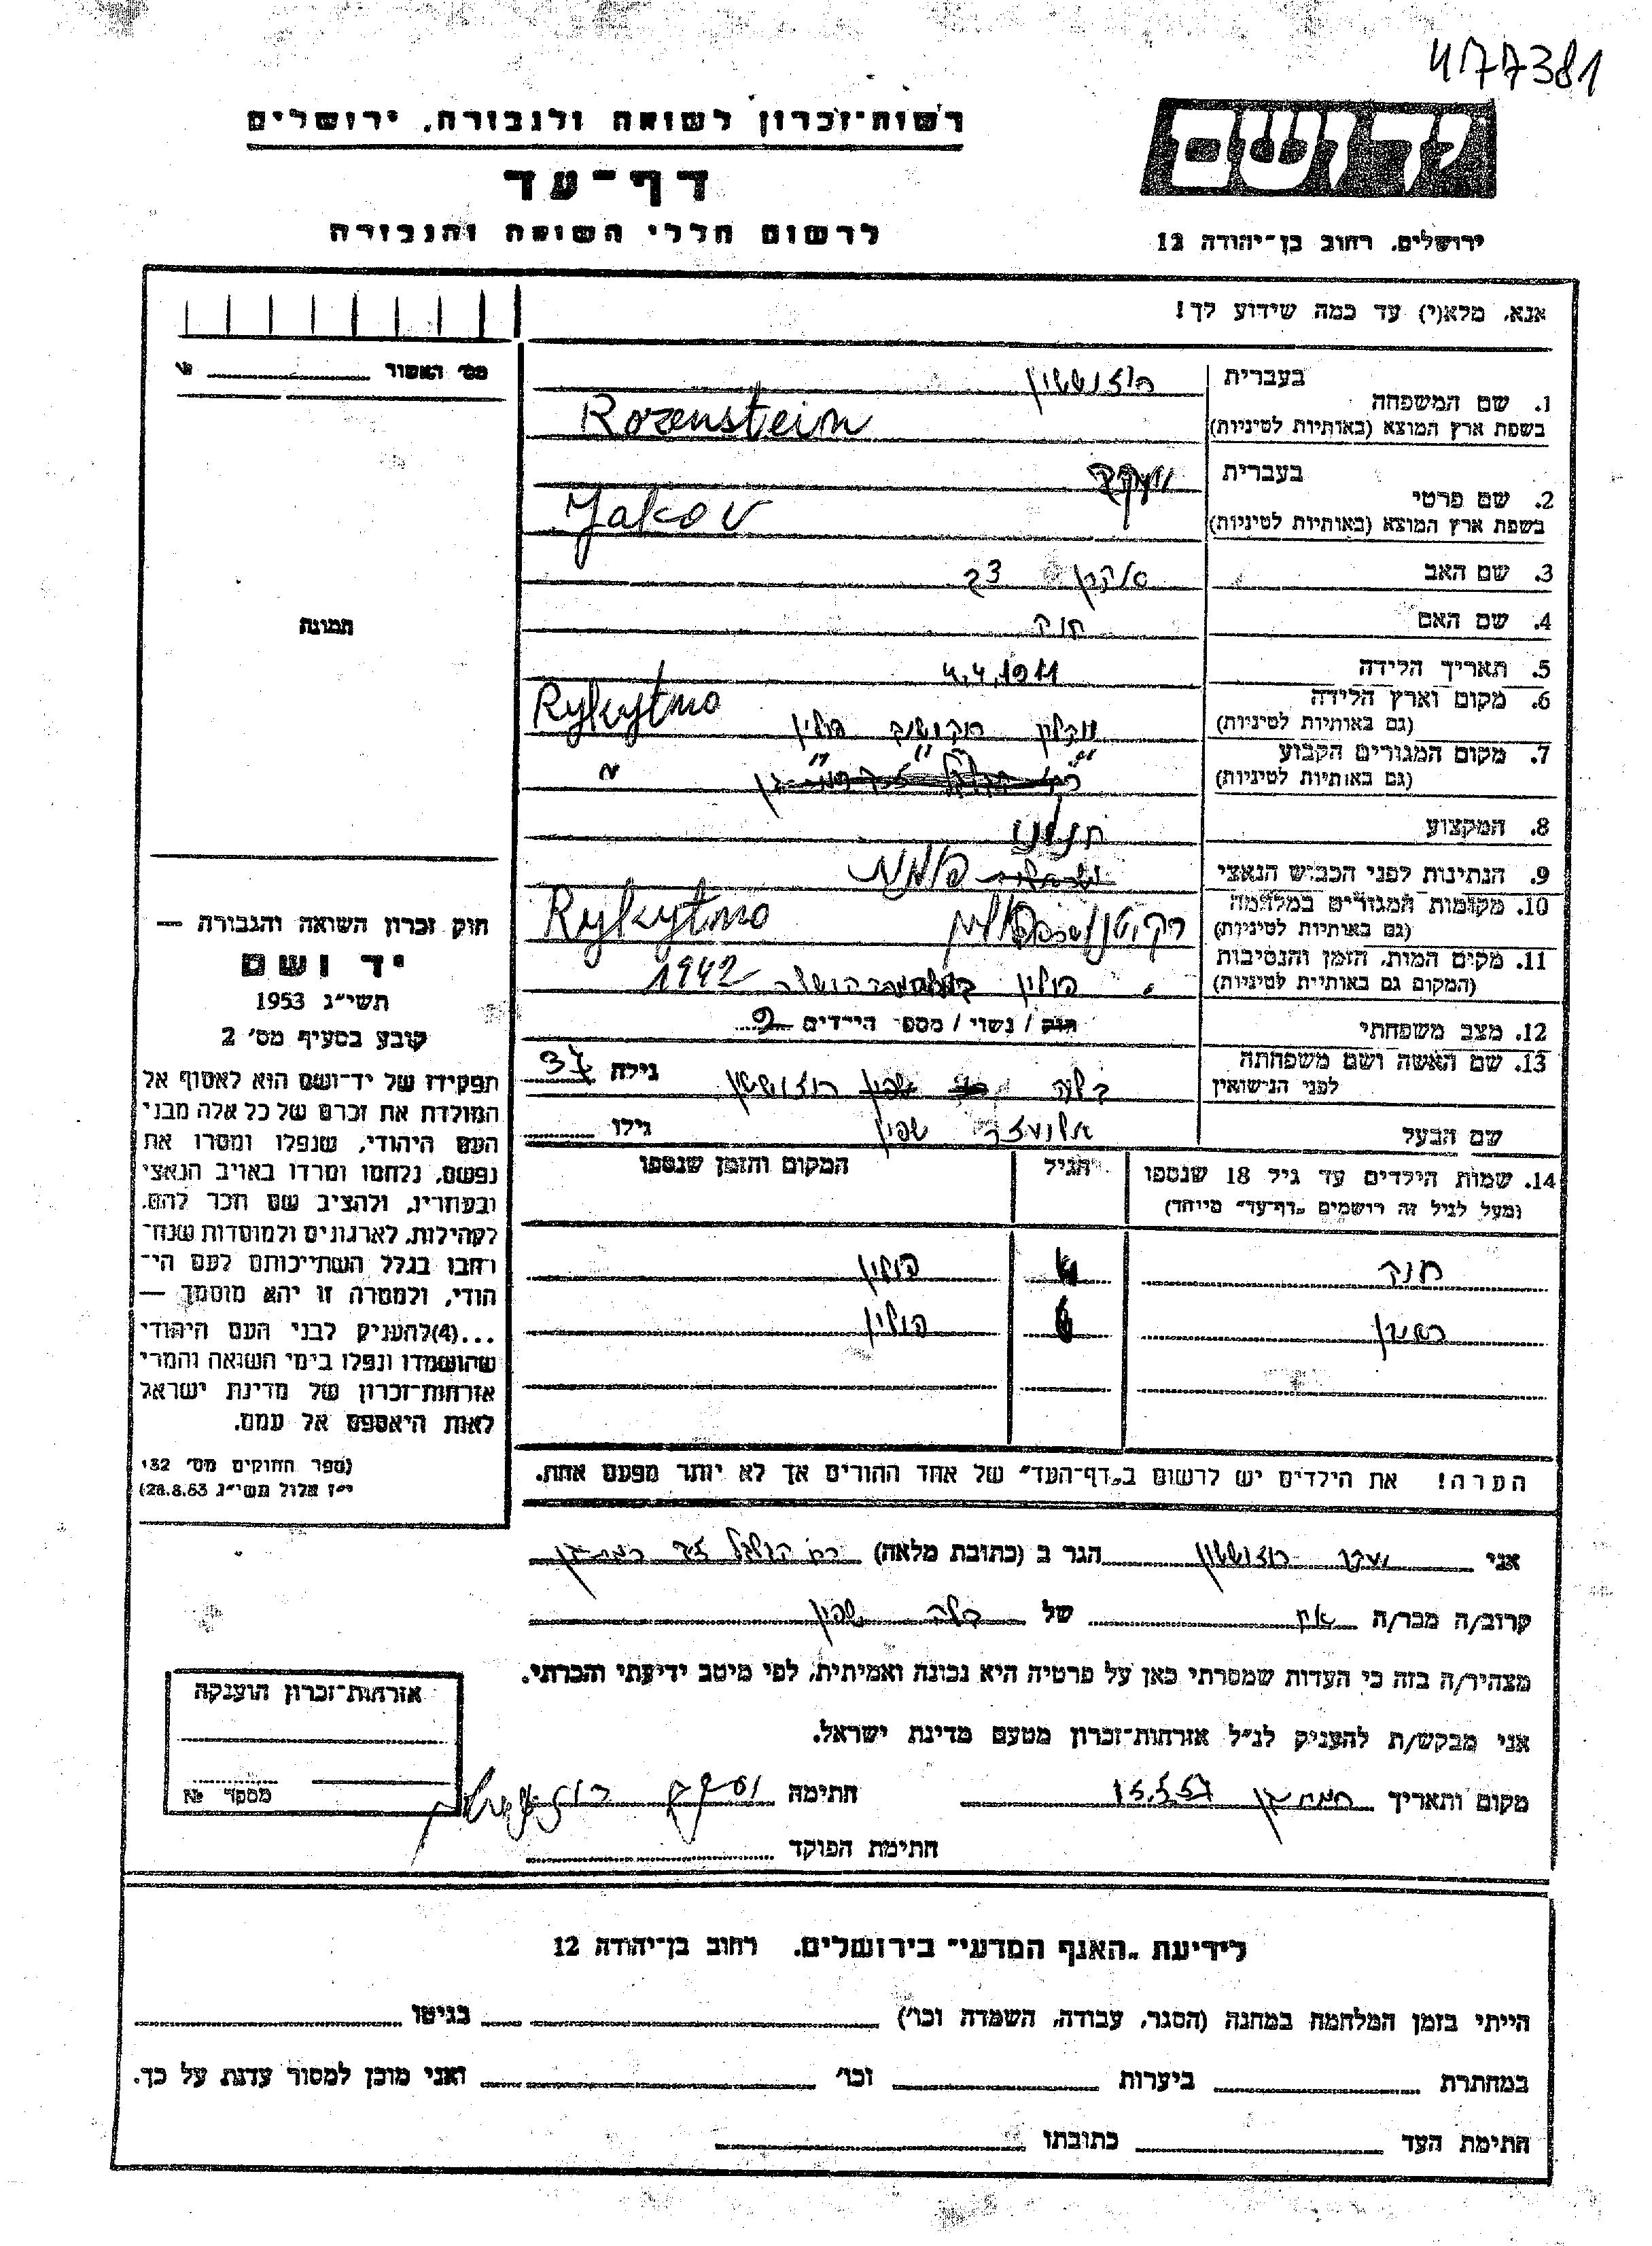 477381
רשות־זכרון לשואה ולגבורה, ירושלים
יד ושם
דף־עד
לרשום חללי השואה והגבורה
ירושלים, רחוב בן־יהודה 12
אנא, מלא(י) עד כמה שידוע לך!
מס׳ האשור №
בעברית רוזנשטיין
1. שם המשפחה
בשפת ארץ המוצא (באותיות לטיניות) Rozenstein
בעברית יעקב
2. שם פרטי
בשפת ארץ המוצא (באותיות לטיניות) Yakov
3. שם האב
4. שם האם חוה
תמונה
5. תאריך הלידה 4.4.1911
6. מקום וארץ הלידה
(גם באותיות לטיניות) פולין Rykytno
7. מקום המגורים הקבוע
(גם באותיות לטיניות) " " " "
8. המקצוע חנוני
9. הנתינות לפני הכבוש הנאצי
10. מקומות המגורים במלחמה
(גם באותיות לטיניות) Rykytno
11. מקום המות, הזמן והנסיבות
(המקום גם באותיות לטיניות) פולין 1942
12. מצב משפחתי רוק / נשוי / מספר הילדים 2
13. שם האשה ושם משפחתה
לפני הנישואין רוזנשטיין גילה 37
שם הבעל שפין גילו
14. שמות הילדים עד גיל 18 שנספו הגיל המקום והזמן שנספו
(מעל לגיל זה רושמים „דף־עד״ מיוחד)
פולין
פולין
הערה! את הילדים יש לרשום ב„דף־העד״ של אחד ההורים אך לא יותר מפעם אחת.
חוק זכרון השואה והגבורה —
יד ושם
תשי״ג 1953
קובע בסעיף מס׳ 2
תפקידו של יד־ושם הוא לאסוף אל
המולדת את זכרם של כל אלה מבני
העם היהודי, שנפלו ומסרו את
נפשם, נלחמו ומרדו באויב הנאצי
ובעוזריו, ולהציב שם וזכר להם,
לקהילות, לארגונים ולמוסדות שנח־
רבו בגלל השתייכותם לעם הי־
הודי, ולמטרה זו יהא מוסמך —
...(4) להעניק לבני העם היהודי
שהושמדו ונפלו בימי השואה והמרי
אזרחות־זכרון של מדינת ישראל
לאות היאספם אל עמם.
(ספר החוקים מס׳ 132
י״ז אלול תשי״ג 28.8.53)
אני רוזנשטיין הגר ב (כתובת מלאה)
קרוב/ה מכר/ה אח של שפין
מצהיר/ה בזה כי העדות שמסרתי כאן על פרטיה היא נכונה ואמיתית, לפי מיטב ידיעתי והכרתי.
אני מבקש/ת להעניק לנ״ל אזרחות־זכרון מטעם מדינת ישראל.
מקום ותאריך רמת גן 15.5.57 חתימה
חתימת הפוקד
אזרחות־זכרון הוענקה
מספר №
לידיעת „האגף המדעי״ בירושלים, רחוב בן־יהודה 12
הייתי בזמן המלחמה במחנה (הסגר, עבודה, השמדה וכו׳) בגיטו
במחתרת ביערות וכו׳ ואני מוכן למסור עדות על כך.
חתימת העד כתובתו